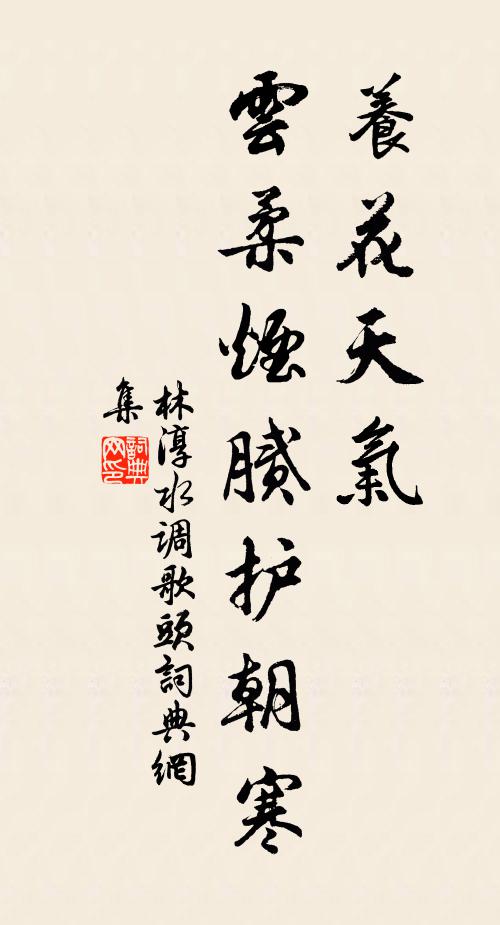 養花天氣
雲柔煙膩护朝寒
林淳水调歌頭詞典網
集
詞典網印